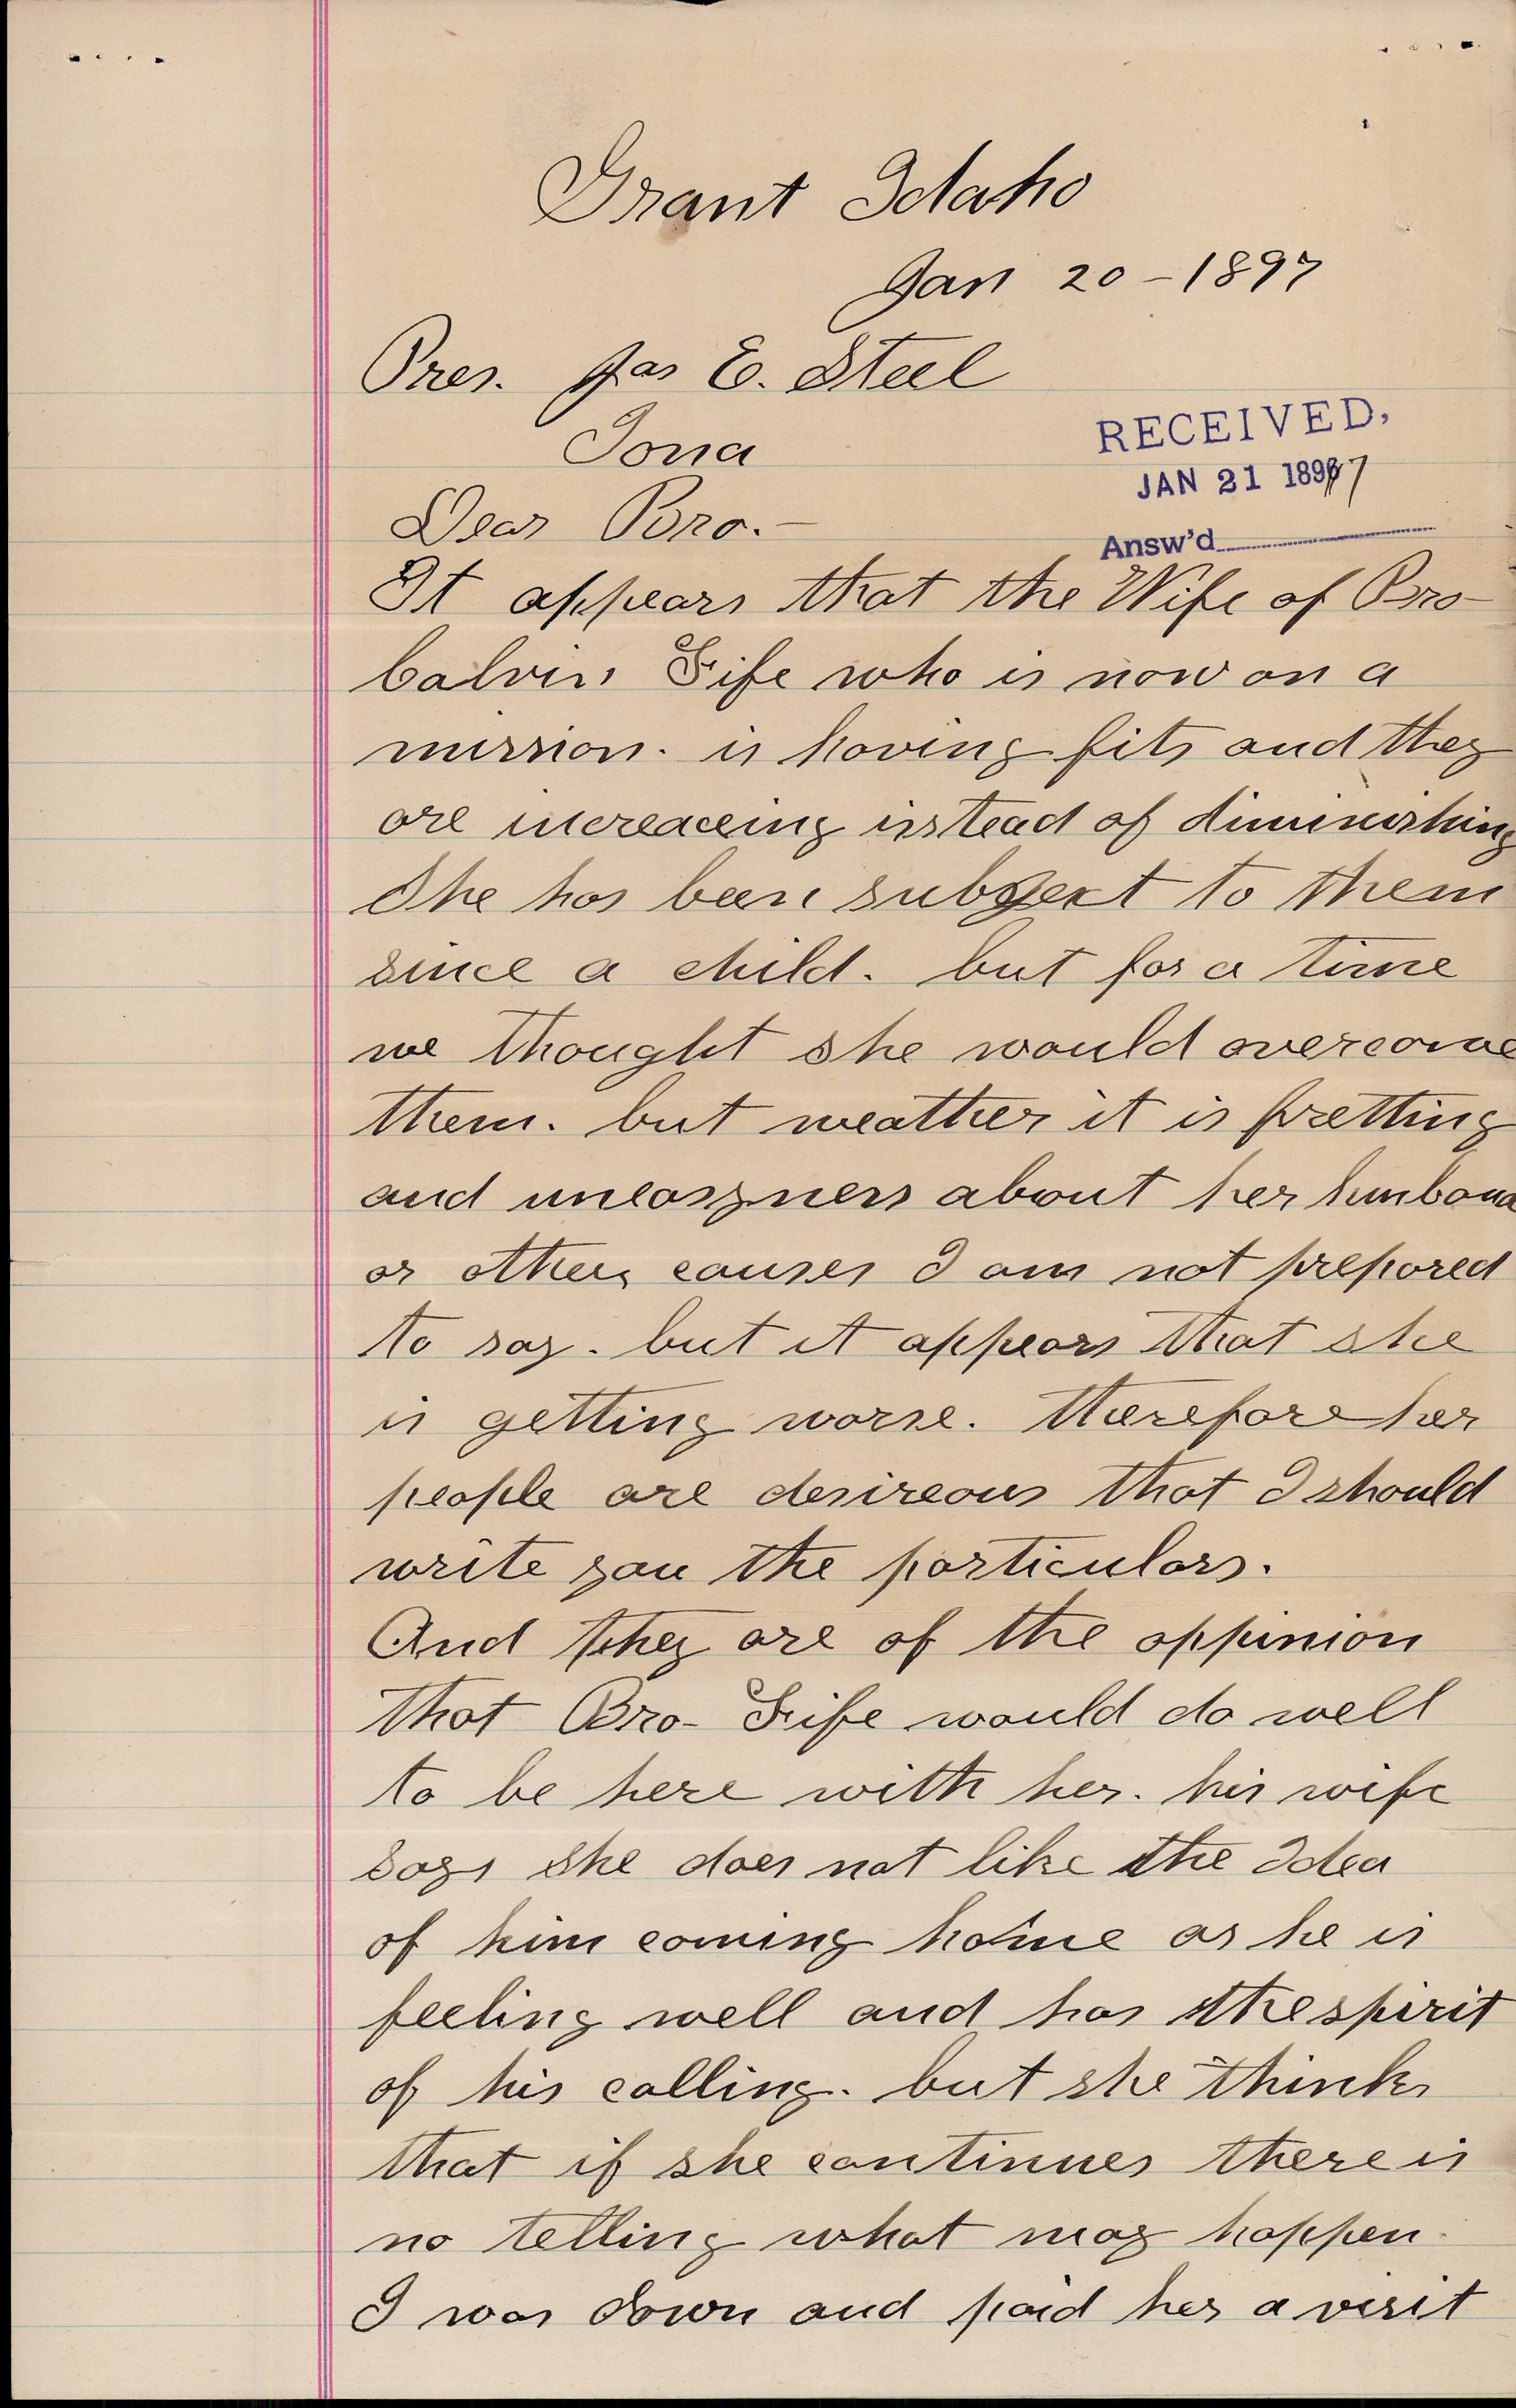 Grant Idaho
Jan 20 - 1897
Pres. Jas E. Steel
Iona
RECEIVED,
JAN 21 1897
Dear Bro. -
Answ'd
It appears that the Wife of Bro-
Calvin Fife who is now on a
mission. is having fits and they
are increaceing instead of diminishing
She has been subject to them
since a child. but for a time
we thought she would overcome
them. but weather it is fretting
and uneasyness about her husband
or other causes I am not prepared
to say. but it appears that she
is getting worse. therefore her
people are desireous that I should
write you the particulars.
And they are of the oppinion
that Bro- Fife would do well
to be here with her. his wife
says she does not like the Idea
of him coming home as he is
feeling well and has the spirit
of his calling. but she thinks
that if she continues there is
no telling what may happen.
I was down and paid her a visit